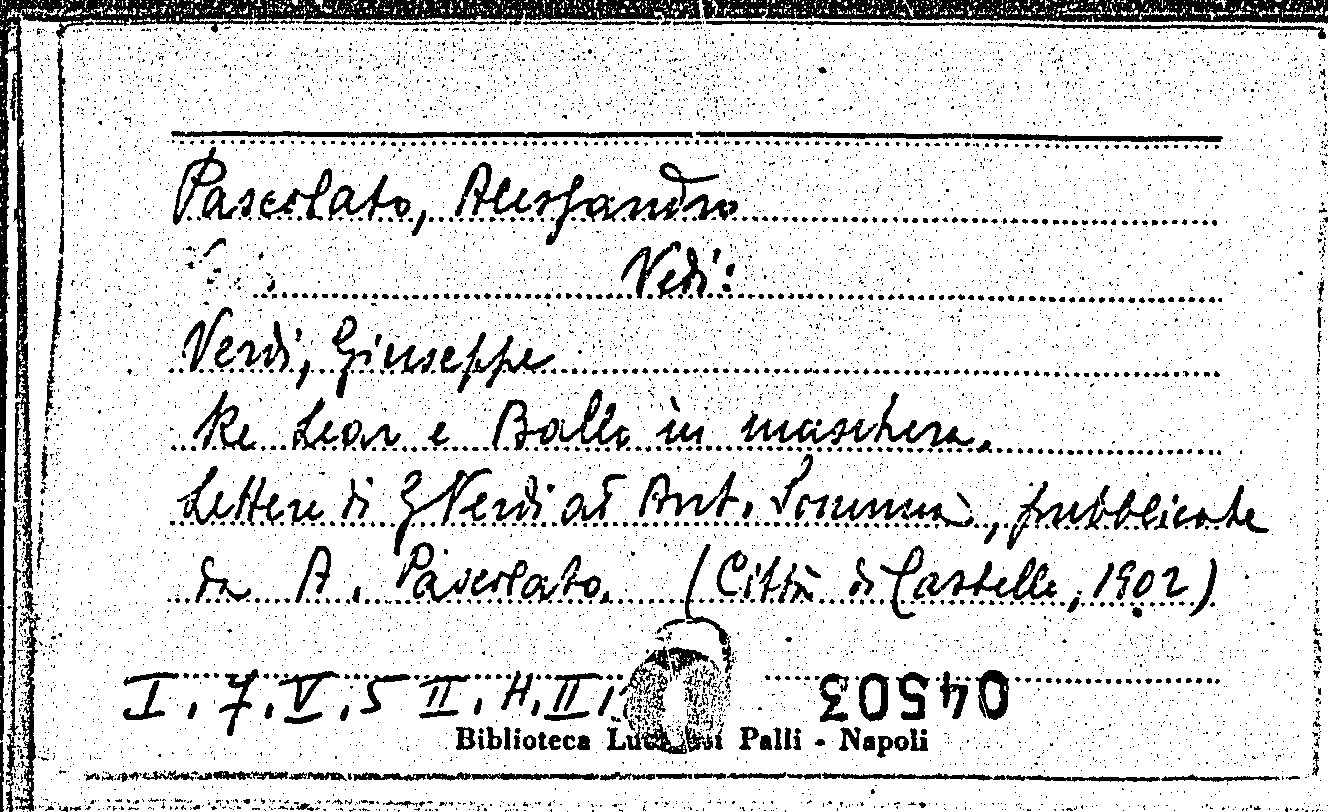 Pascolato, Alessandro
Vedi:
Verdi, Giuseppe
Re Lear e Ballo in maschera.
Lettere di G Verdi ad Ant. Somma, pubblicate
da A. Pascolato. (Città di Castello, 1902)
I. 7. V. 5 II. H. III.
04503
Biblioteca Lucchesi Palli - Napoli